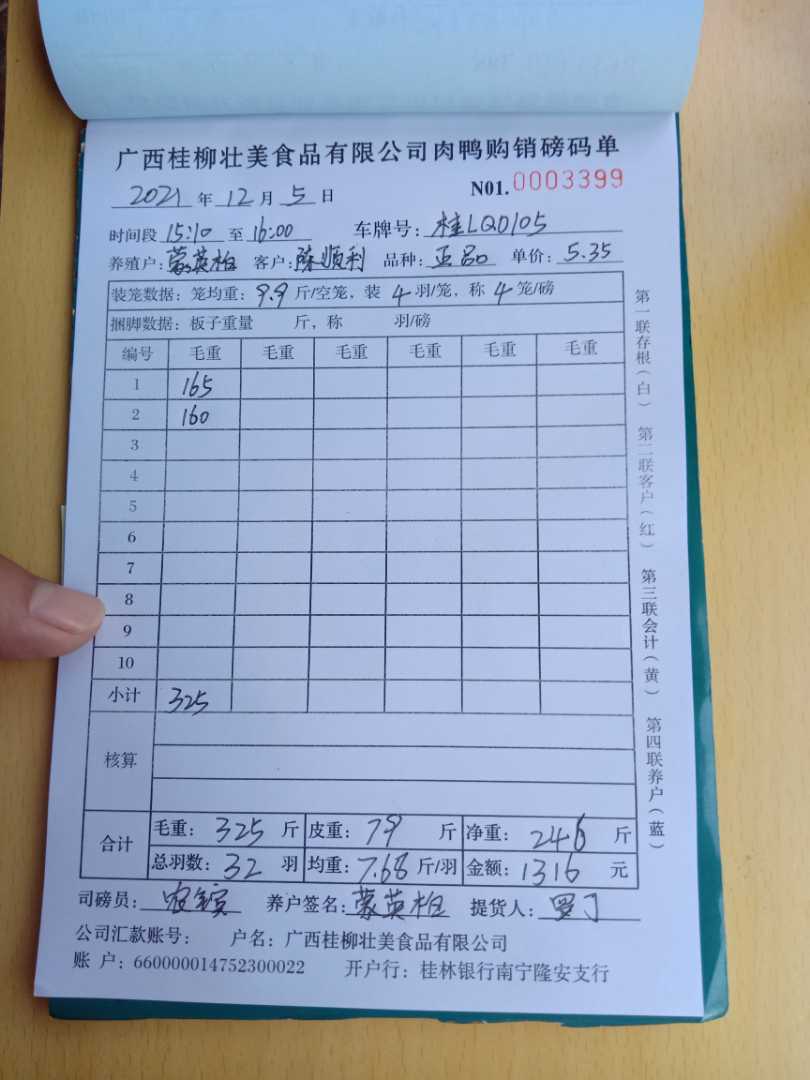 广西桂柳壮美食品有限公司肉鸭购销磅码单
2021 年 12 月 5 日 N01. 0003399
时间段 15:10 至 16:00 车牌号: 桂LQ0105
养殖户: 蒙英柏 客户: 陈顺利 品种: 正品 单价: 5.35
装笼数据: 笼均重: 9.9 斤/空笼, 装 4 羽/笼, 称 4 笼/磅
捆脚数据: 板子重量 斤, 称 羽/磅
编号 毛重 毛重 毛重 毛重 毛重 毛重
1 165
2 160
3
4
5
6
7
8
9
10
小计 325
核算
合计 毛重: 325 斤 皮重: 79 斤 净重: 246 斤
总羽数: 32 羽 均重: 7.68 斤/羽 金额: 1316 元
司磅员: 养户签名: 蒙英柏 提货人: 罗丁
公司汇款账号: 户名: 广西桂柳壮美食品有限公司
账 户: 660000014752300022 开户行: 桂林银行南宁隆安支行
第一联存根(白) 第二联客户(红) 第三联会计(黄) 第四联养户(蓝)